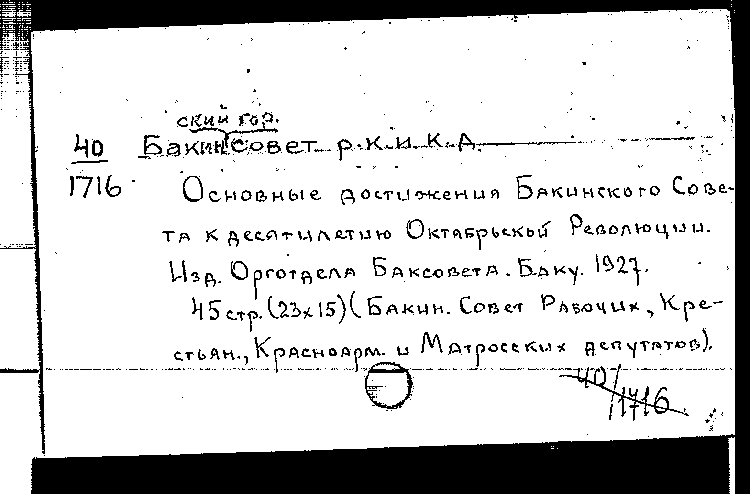 ский гор.
40 Бакинсовет р.к.и.к.д.
1716
Основные достижения Бакинского Сове-
та к десятилетию Октябрьской Революции.
Изд. Орготдела Баксовета. Баку. 1927.
45 стр. (23x15) (Бакин. Совет Рабочих, Кре-
стьян., Красноарм. и Матросских депутатов).
40/1716